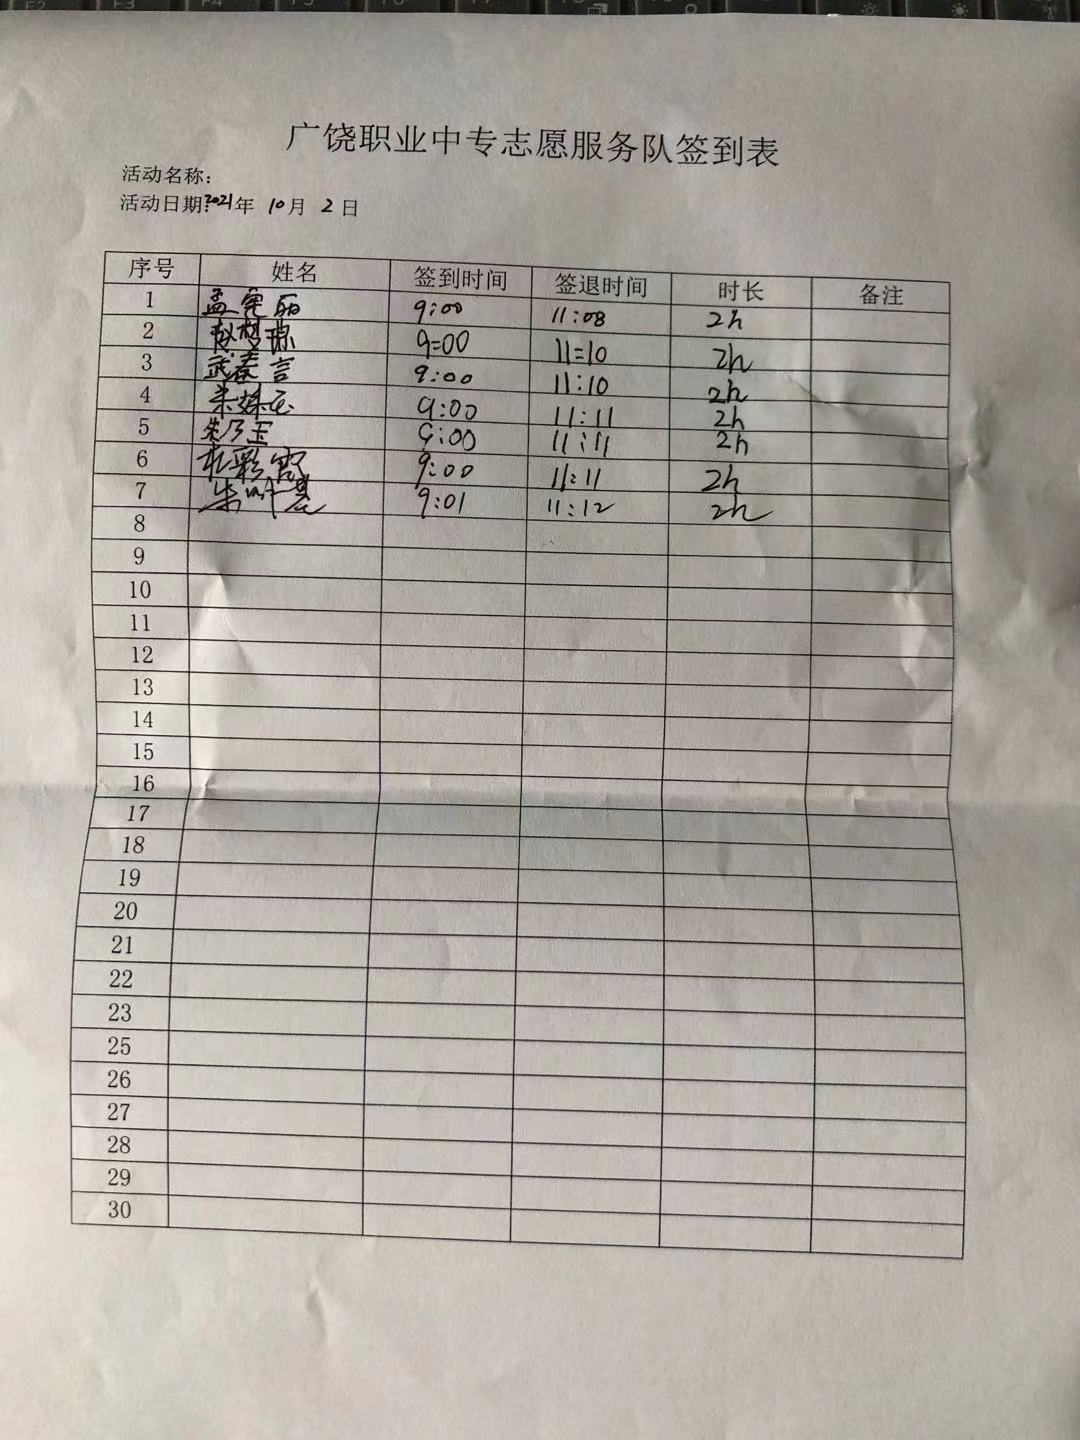 广饶职业中专志愿服务队签到表
活动名称：
活动日期：2021年 10月 2日
序号 姓名 签到时间 签退时间 时长 备注
1 孟宪丽 9:00 11:08 2h
2 赵梦琪 9:00 11:10 2h
3 武春言 9:00 11:10 2h
4 9:00 11:11 2h
5 朱乃玉 9:00 11:11 2h
6 杜彩霞 9:00 11:11 2h
7 9:01 11:12 2h
8
9
10
11
12
13
14
15
16
17
18
19
20
21
22
23
25
26
27
28
29
30